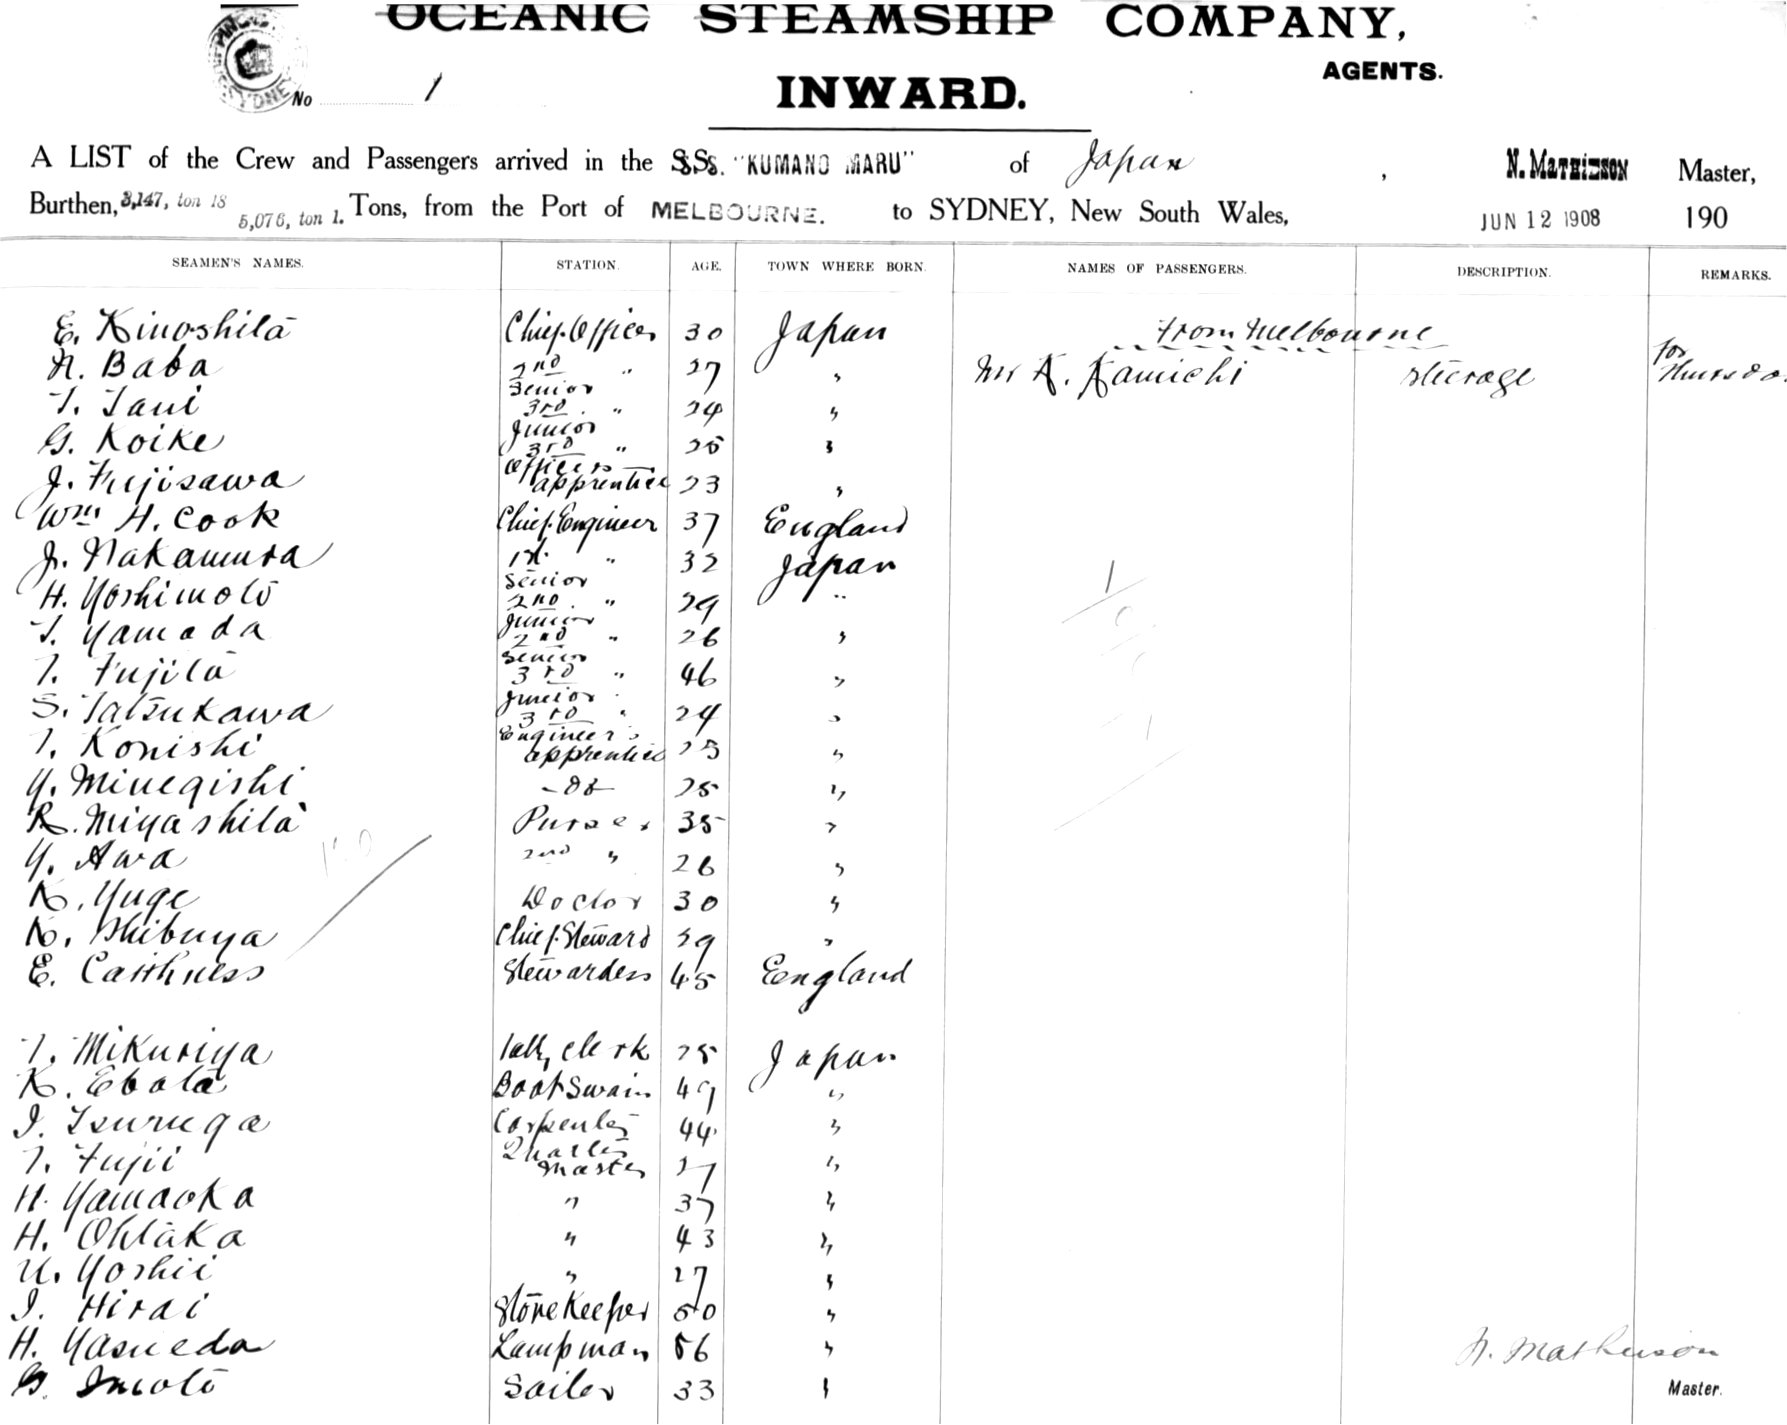 OCEANIC STEAMSHIP COMPANY,
AGENTS.
No 1
INWARD.
A LIST of the Crew and Passengers arrived in the S.Ss. "KUMANO MARU" of Japan , N. MATHIESON Master,
Burthen, 3,147, ton 18 5,076, ton 1. Tons, from the Port of MELBOURNE. to SYDNEY, New South Wales, JUN 12 1908 190
SEAMEN'S NAMES. STATION. AGE. TOWN WHERE BORN. NAMES OF PASSENGERS. DESCRIPTION. REMARKS.
E. Kinoshita Chief Officer 30 Japan From Melbourne
N. Baba 2nd " 27 " Mr K. Kamichi steerage for Thursda
T. Tani Senior 3rd " 24 "
G. Koike Junior 3rd " 25 "
J. Fujisawa Officers apprentice 23 "
Wm H. Cook Chief Engineer 37 England
J. Nakamura 1st " 32 Japan
H. Yoshimoto Senior 2nd " 29 "
T. Yamada Junior 2nd " 26 "
T. Fujita Senior 3rd " 46 "
S. Tatsukawa Junior 3rd " 24 "
T. Konishi Engineer's apprentice 25 "
Y. Minegishi -do- 25 "
R. Miyashita Purser 35 "
Y. Awa 2nd " 26 "
K. Yuge Doctor 30 "
K. Shibuya Chief Steward 29 "
E. Caithness Stewardess 45 England
T. Mikuriya Tally clerk 25 Japan
K. Ebata Boatswain 49 "
I. Tsuruga Carpenter 44 "
T. Fujii Quarter master 27 "
H. Yamaoka " 37 "
H. Ohtaka " 43 "
U. Yoshii " 27 "
I. Hirai Storekeeper 50 "
H. Yasueda Lampman 56 "
G. Imoto Sailor 33 "
N. Mathieson
Master.